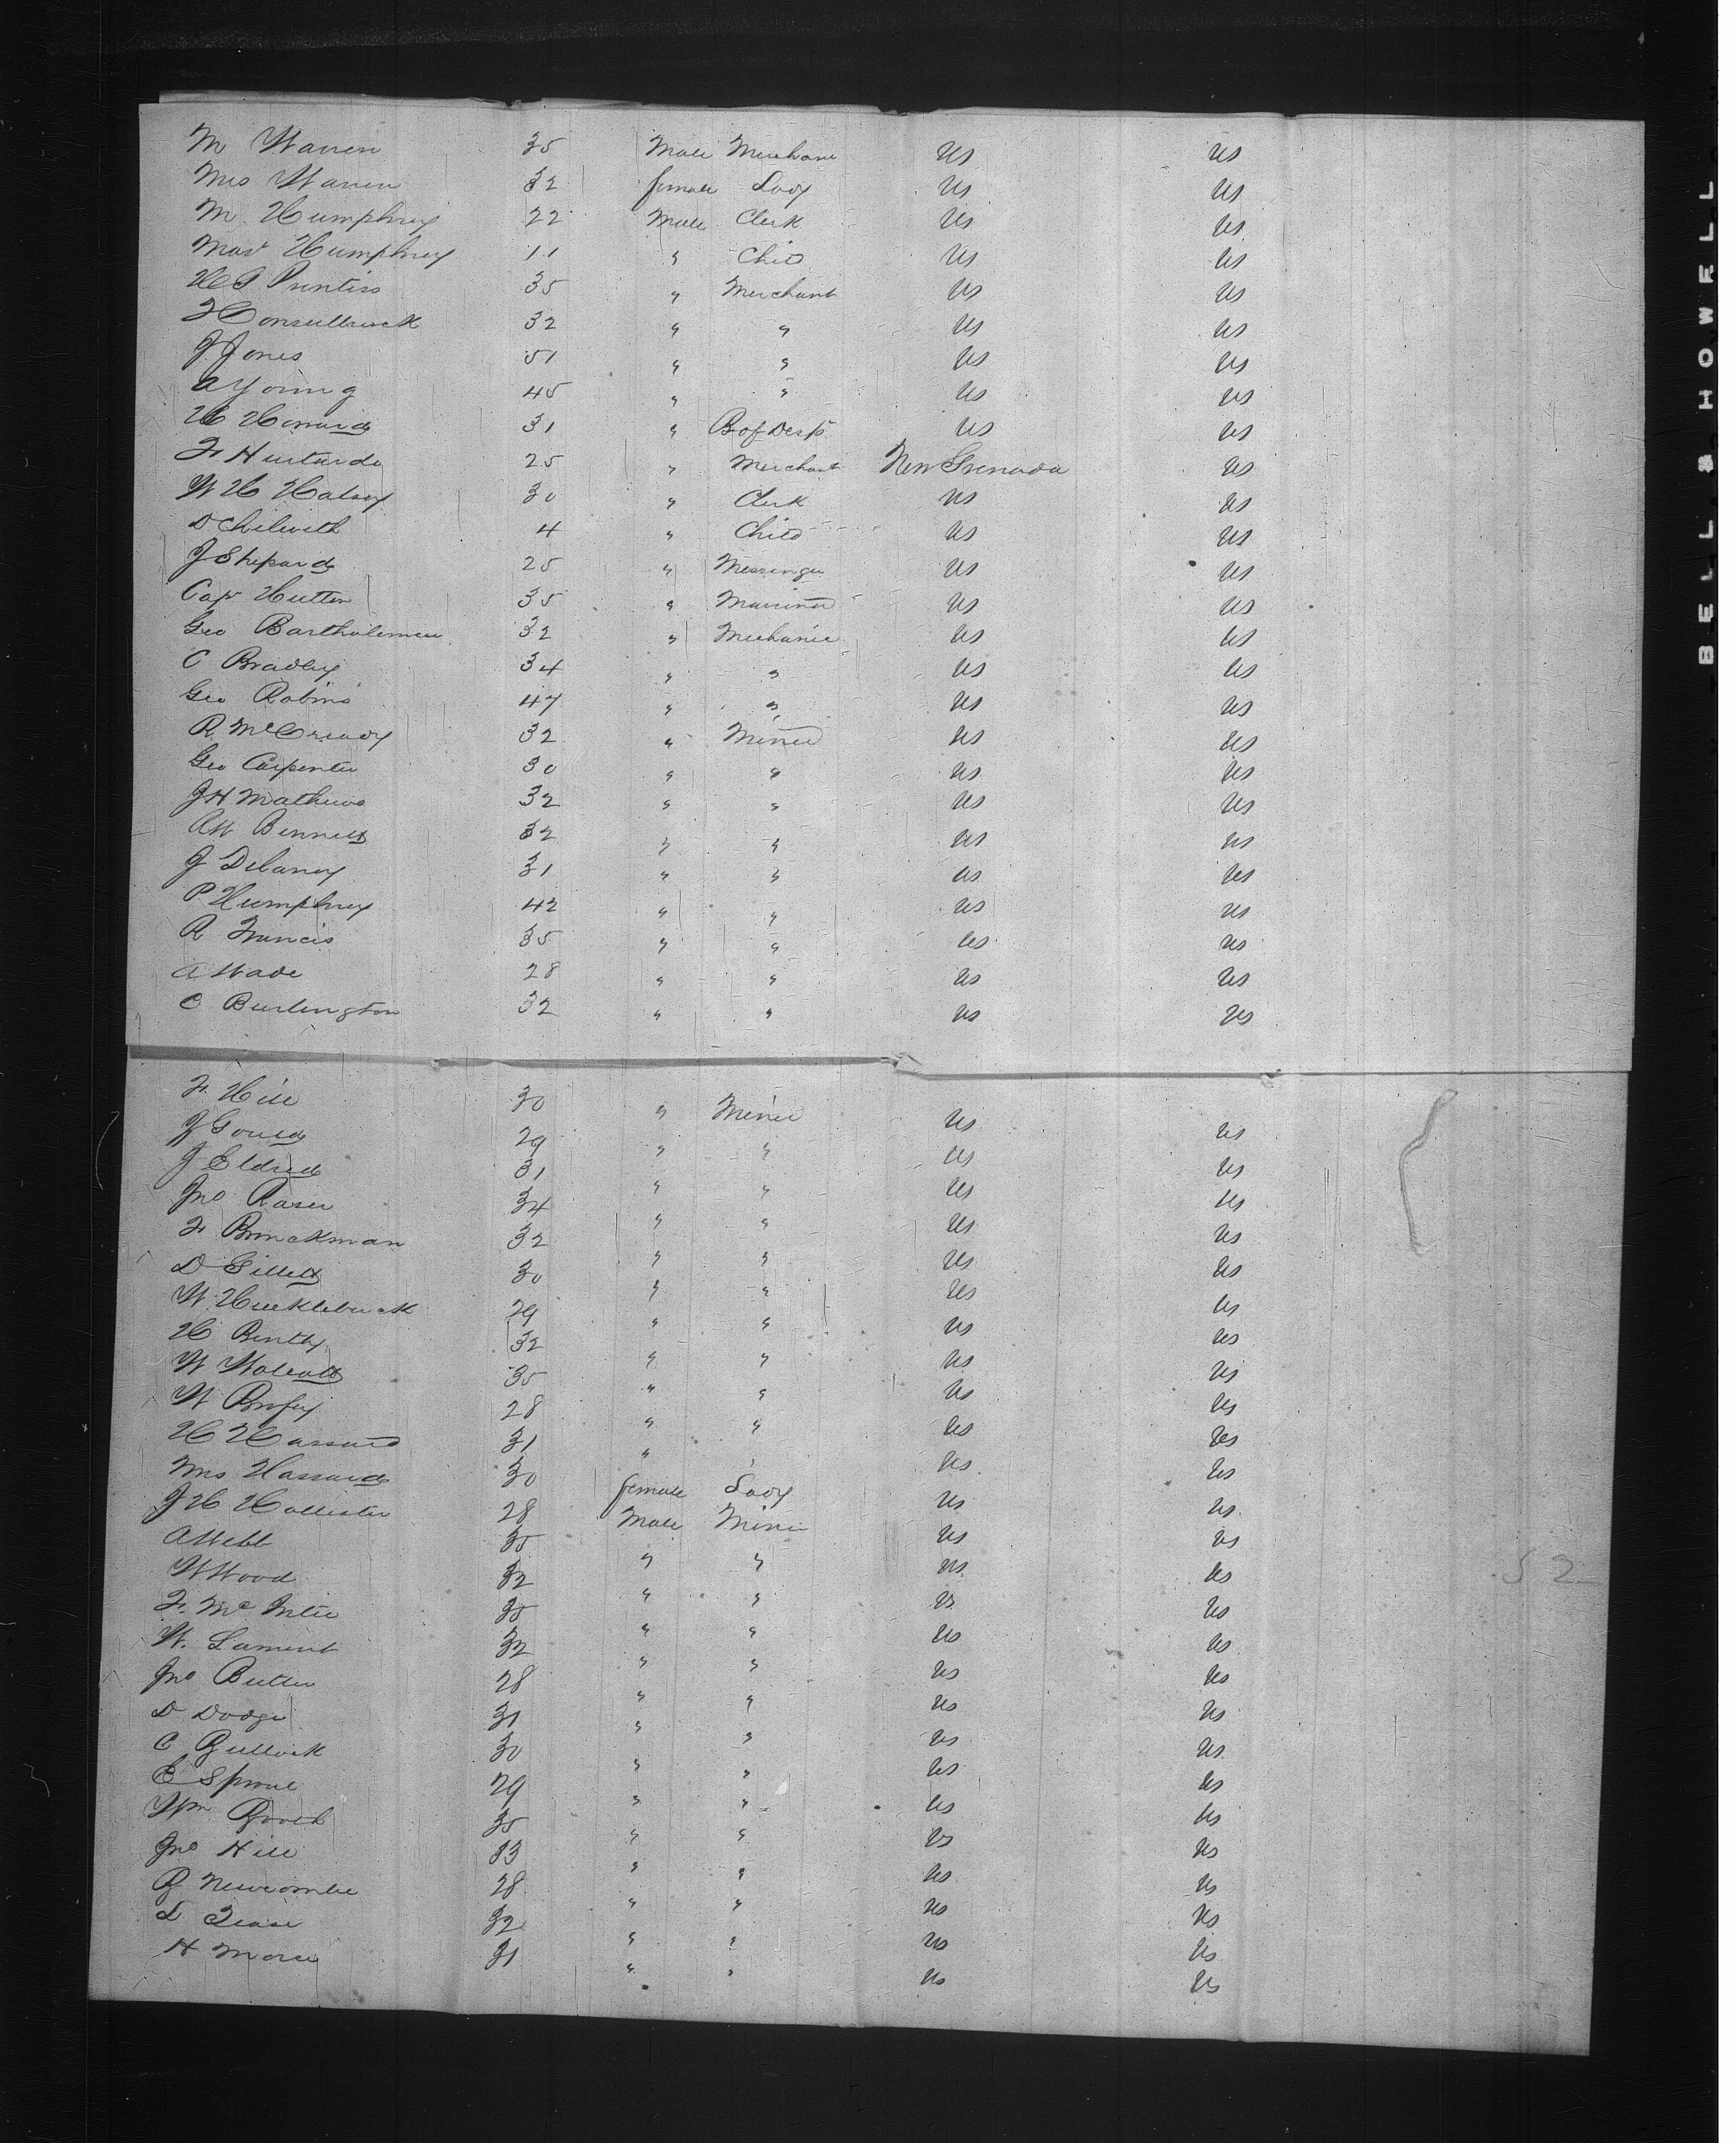 M Warren 35 Male Merchant US US
Mrs Warren 32 female Lady US US
M Humphrey 22 Male Clerk US US
Mas Humphrey 11 " Child US US
H S Prentiss 35 " Merchant US US
32 " " US US
J Jones 51 " " US US
A Young 45 " " US US
H Howard 31 " B of Desp US US
F Hurtardo 25 " Merchant New Grenada US
W H Halsey 30 " Clerk US US
D Chilwith 4 " Child US US
J Shepard 25 " Messenger US US
Cap Hutton 35 " Mariner US US
Geo Bartholemew 32 " Mechanic US US
C Bradley 34 " " US US
Geo Robins 47 " " US US
R McCready 32 " Miner US US
Geo Carpenter 30 " " US US
J H Mathews 32 " " US US
A W Bennett 32 " " US US
J Delaney 31 " " US US
P Humphrey 42 " " US US
R Francis 35 " " US US
A Wade 28 " " US US
C Burlington 32 " " US US
F. Hill 30 " Miner US US
J Gould 29 " " US US
J Eldred 31 " " US US
Jno Raser 34 " " US US
F Brinckman 32 " " US US
D Gillett 30 " " US US
W. Hucklebuck 29 " " US US
H Bently 32 " " US US
W Walcott 35 " " US US
W 28 " " US US
H Hassard 31 " " US US
Mrs Hassard 30 female Lady US US
J H Hollister 28 Male Miner US US
A Webb 35 " " US US
W Wood 32 " " US US
F. Mc Intee 35 " " US US
W. Lament 32 " " US US
Jno Butler 28 " " US US
D Dodge 31 " " US US
C Bullock 30 " " US US
E Sproul 29 " " US US
Wm 35 " " US US
Jno Hill 33 " " US US
B Newcombe 28 " " US US
32 " " US US
H Morse 31 " " US US
52
BELL & HOWELL